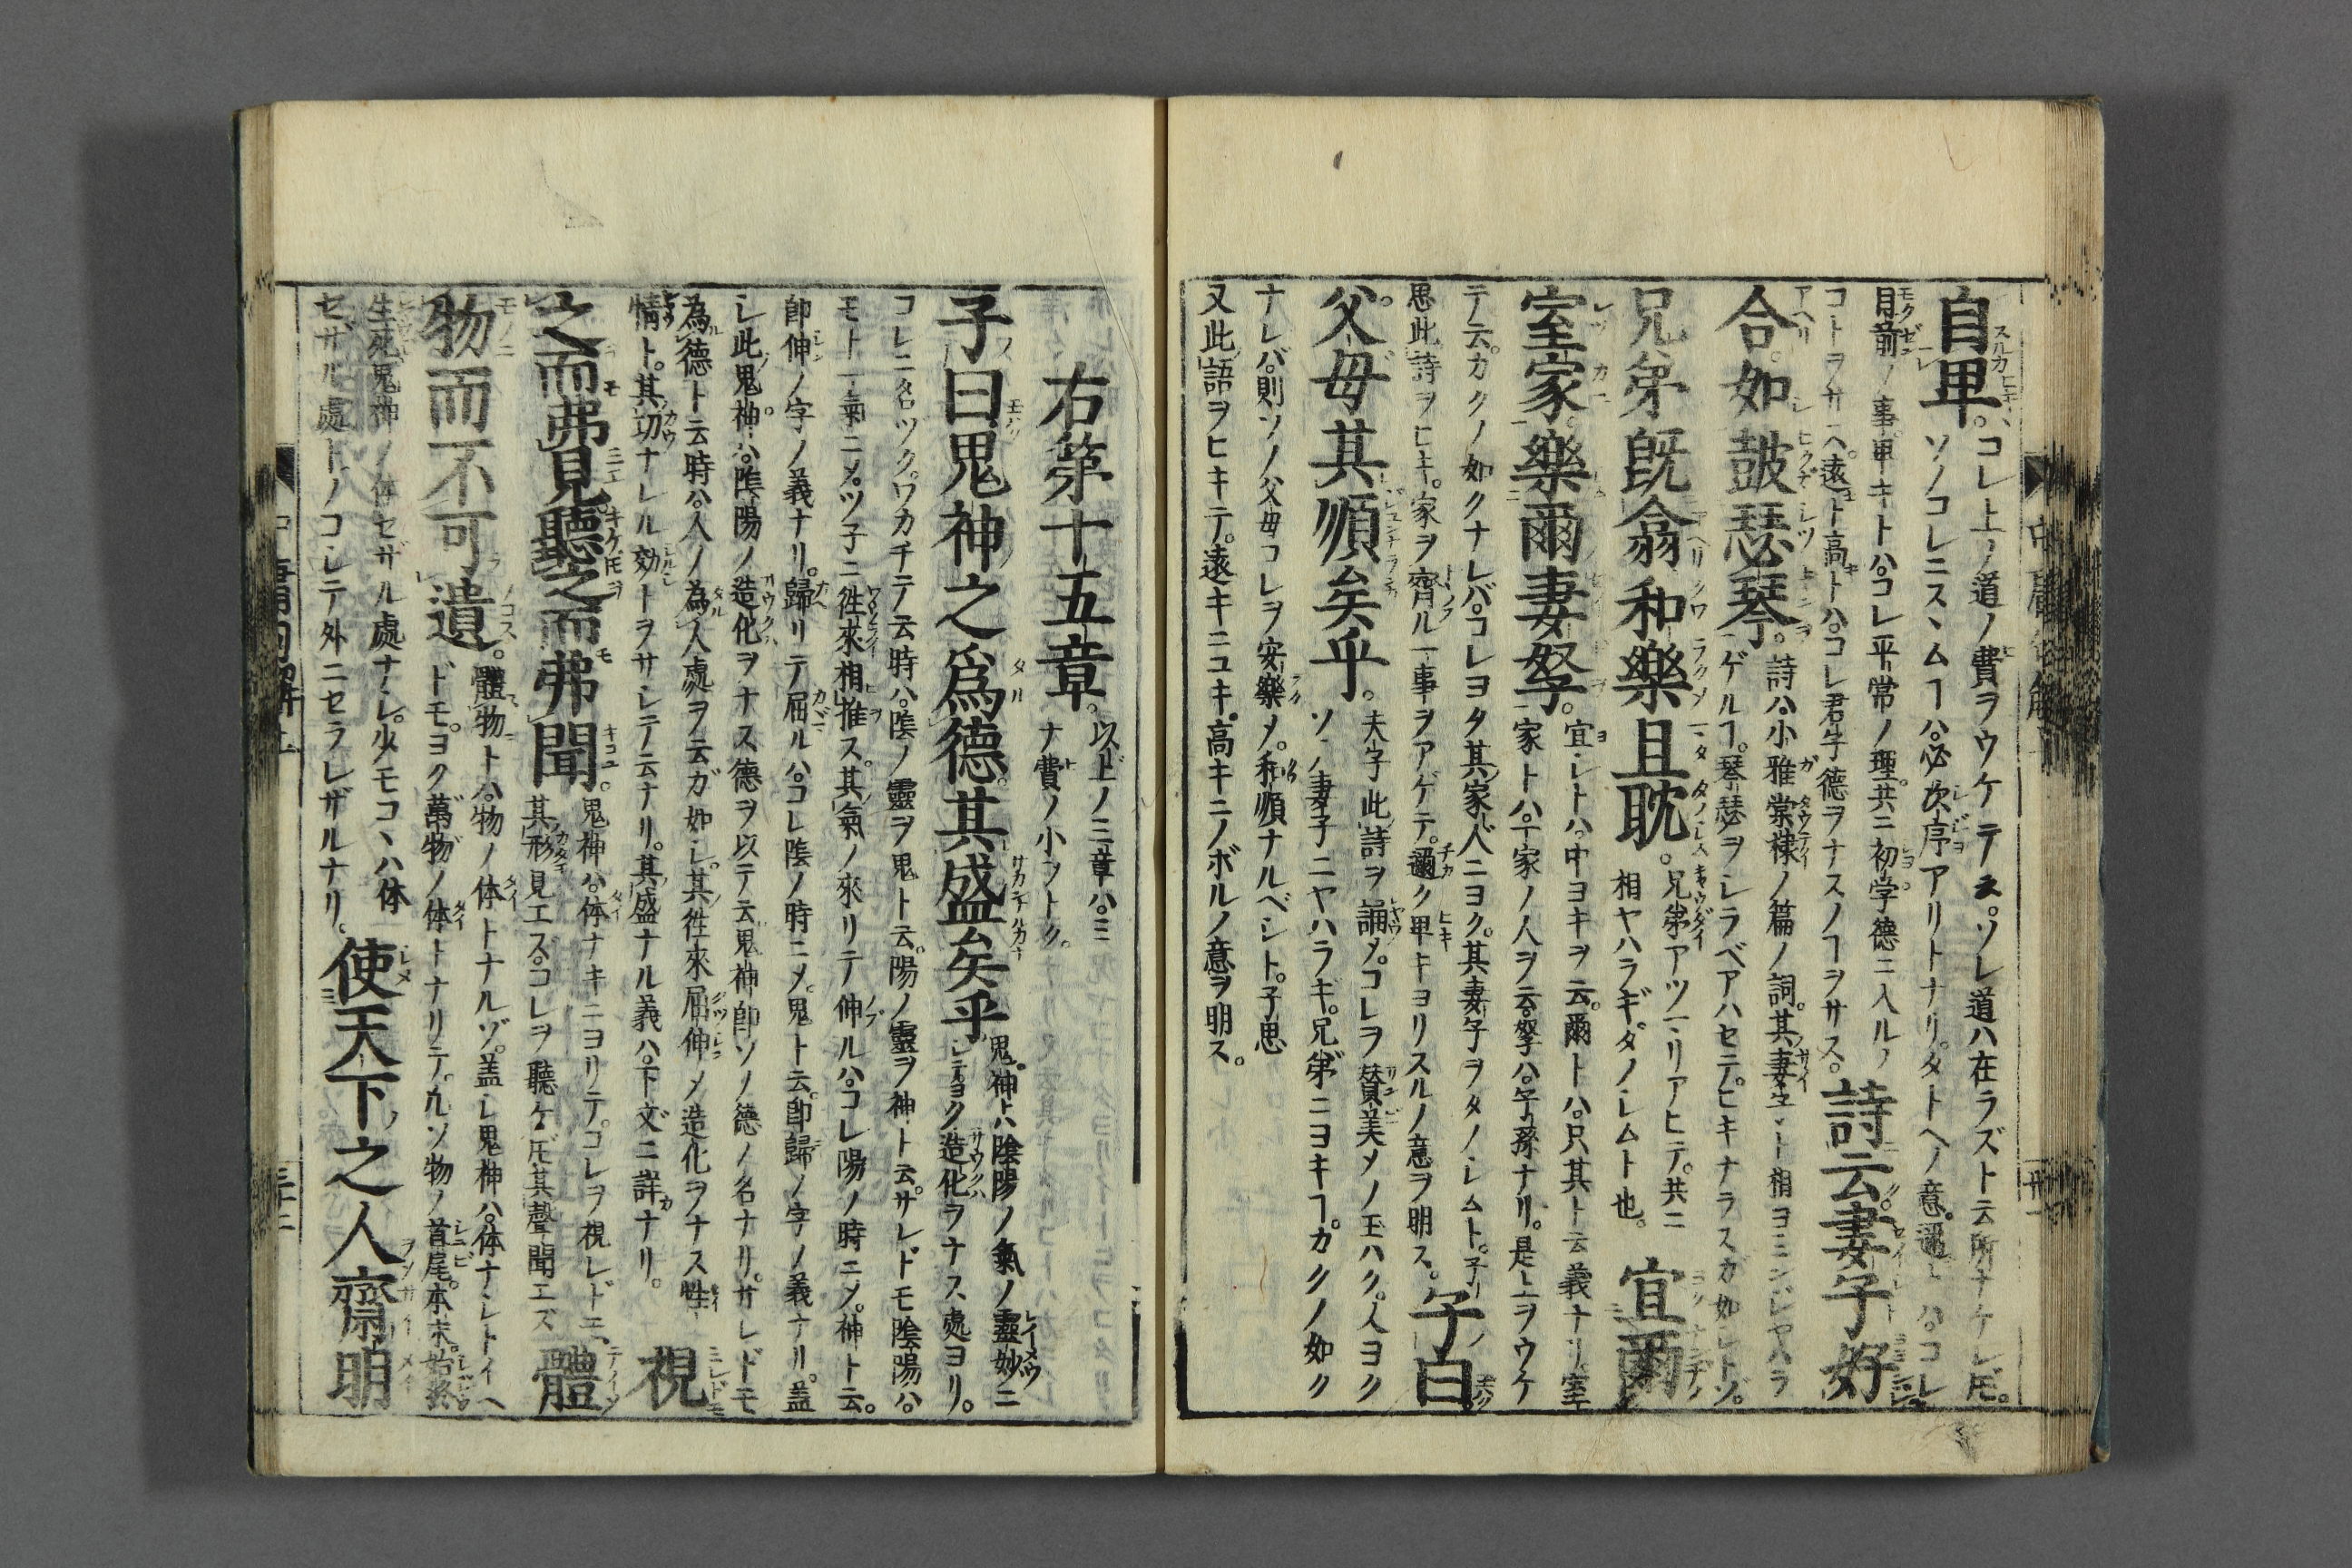 自卑。コレ上ノ道ノ費ヲウケテ云。ソレ道ハ在ラズト云所ナケレ𪜈。
ソノコレニスヽムヿハ。必次序アリトナリ。タトヘノ意。邇トハ。コレ
目前ノ事。卑キトハ。コレ平常ノ理。共ニ初学徳ニ入ルノ
コトヲサヘ。遠ト高トハ。コレ君子德ヲナスノヿヲサス。詩云妻子好
合如鼓瑟琴。詩ハ。小雅棠棣ノ篇ノ詞。其妻ト相ヨミシジヤハラ
ゲルヿ。琴瑟ヲシラベアハセテ。ヒキナラスガ如シトゾ。
兄弟既翕和樂且耽。兄弟アツマリアヒテ。共ニ
相ヤハラギ。タノシムト也。宜爾
室家。樂爾妻孥。宜シトハ。中ヨキヲ云。爾トハ。只其ト云義ナリ。室
家トハ。一家ノ人ヲ云。孥ハ。子孫ナリ。是上ヲウケ
テ云。カクノ如クナレバ。コレヨク其家人ニヨク。其妻子ヲタノシムト。子
思此詩ヲヒキ。家ヲ齊ル一事ヲアゲテ。邇ク卑キヨリスルノ意ヲ明ス。子曰
父母其順矣乎。夫子此詩ヲ誦メ。コレヲ賛美メノ玉ハク。人ヨク
ソノ妻子ニヤハラギ。兄弟ニヨキヿ。カクノ如ク
ナレバ。則ソノ父母コレヲ安樂メ。和順ナルベシト。子思
又此語ヲヒキテ。遠キニユキ。高キニノボルノ意ヲ明ス。
右第十五章。以上ノ三章ハ。ミ
ナ費ノ小ヲトク。
子曰鬼神之爲德。其盛矣乎。鬼神トハ陰陽ノ氣ノ靈妙ニ
シテ。ヨク造化ヲナス處ヨリ。
コレニ名ツク。ワカチテ云時ハ。陰ノ靈ヲ鬼ト云。陽ノ靈ヲ神ト云。サレドモ陰陽ハ。
モト一氣ニメ。ツ子ニ徃來相推ス。其氣ノ來リテ伸ルハ。コレ陽ノ時ニメ。神ト云。
卽伸ノ字ノ義ナリ。歸リテ屈ルハ。コレ陰ノ時ニメ。鬼ト云。卽歸ノ字ノ義ナリ。蓋
シ此鬼神ハ。陰陽ノ造化ヲナス德ヲ以テ云。鬼神卽ソノ德ノ名ナリ。サレドモ
為德ト云時ハ。人ノ為人處ヲ云ガ如シ。其徃來屈伸メ造化ヲナス性
情ト。其切ナレル効トヲサシテ云ナリ。其盛ナル義ハ。下文ニ詳ナリ。視
之而弗見聽之而弗聞。鬼神ハ。体ナキニヨリテ。コレヲ視レドモ、
其形見エズ。コレヲ聽ケ𪜈其聲聞エズ。體
物而不可遺。體物トハ。物ノ体トナルゾ。蓋シ鬼神ハ。体ナシトイヘ
ドモ。ヨク萬物ノ体トナリテ。凡ソ物ノ首尾。本末。始終
生死。鬼神ノ体セザル處ナシ。少モコヽハ体
セザル處トノコシテ外ニセラレザルナリ。使天下之人齋明